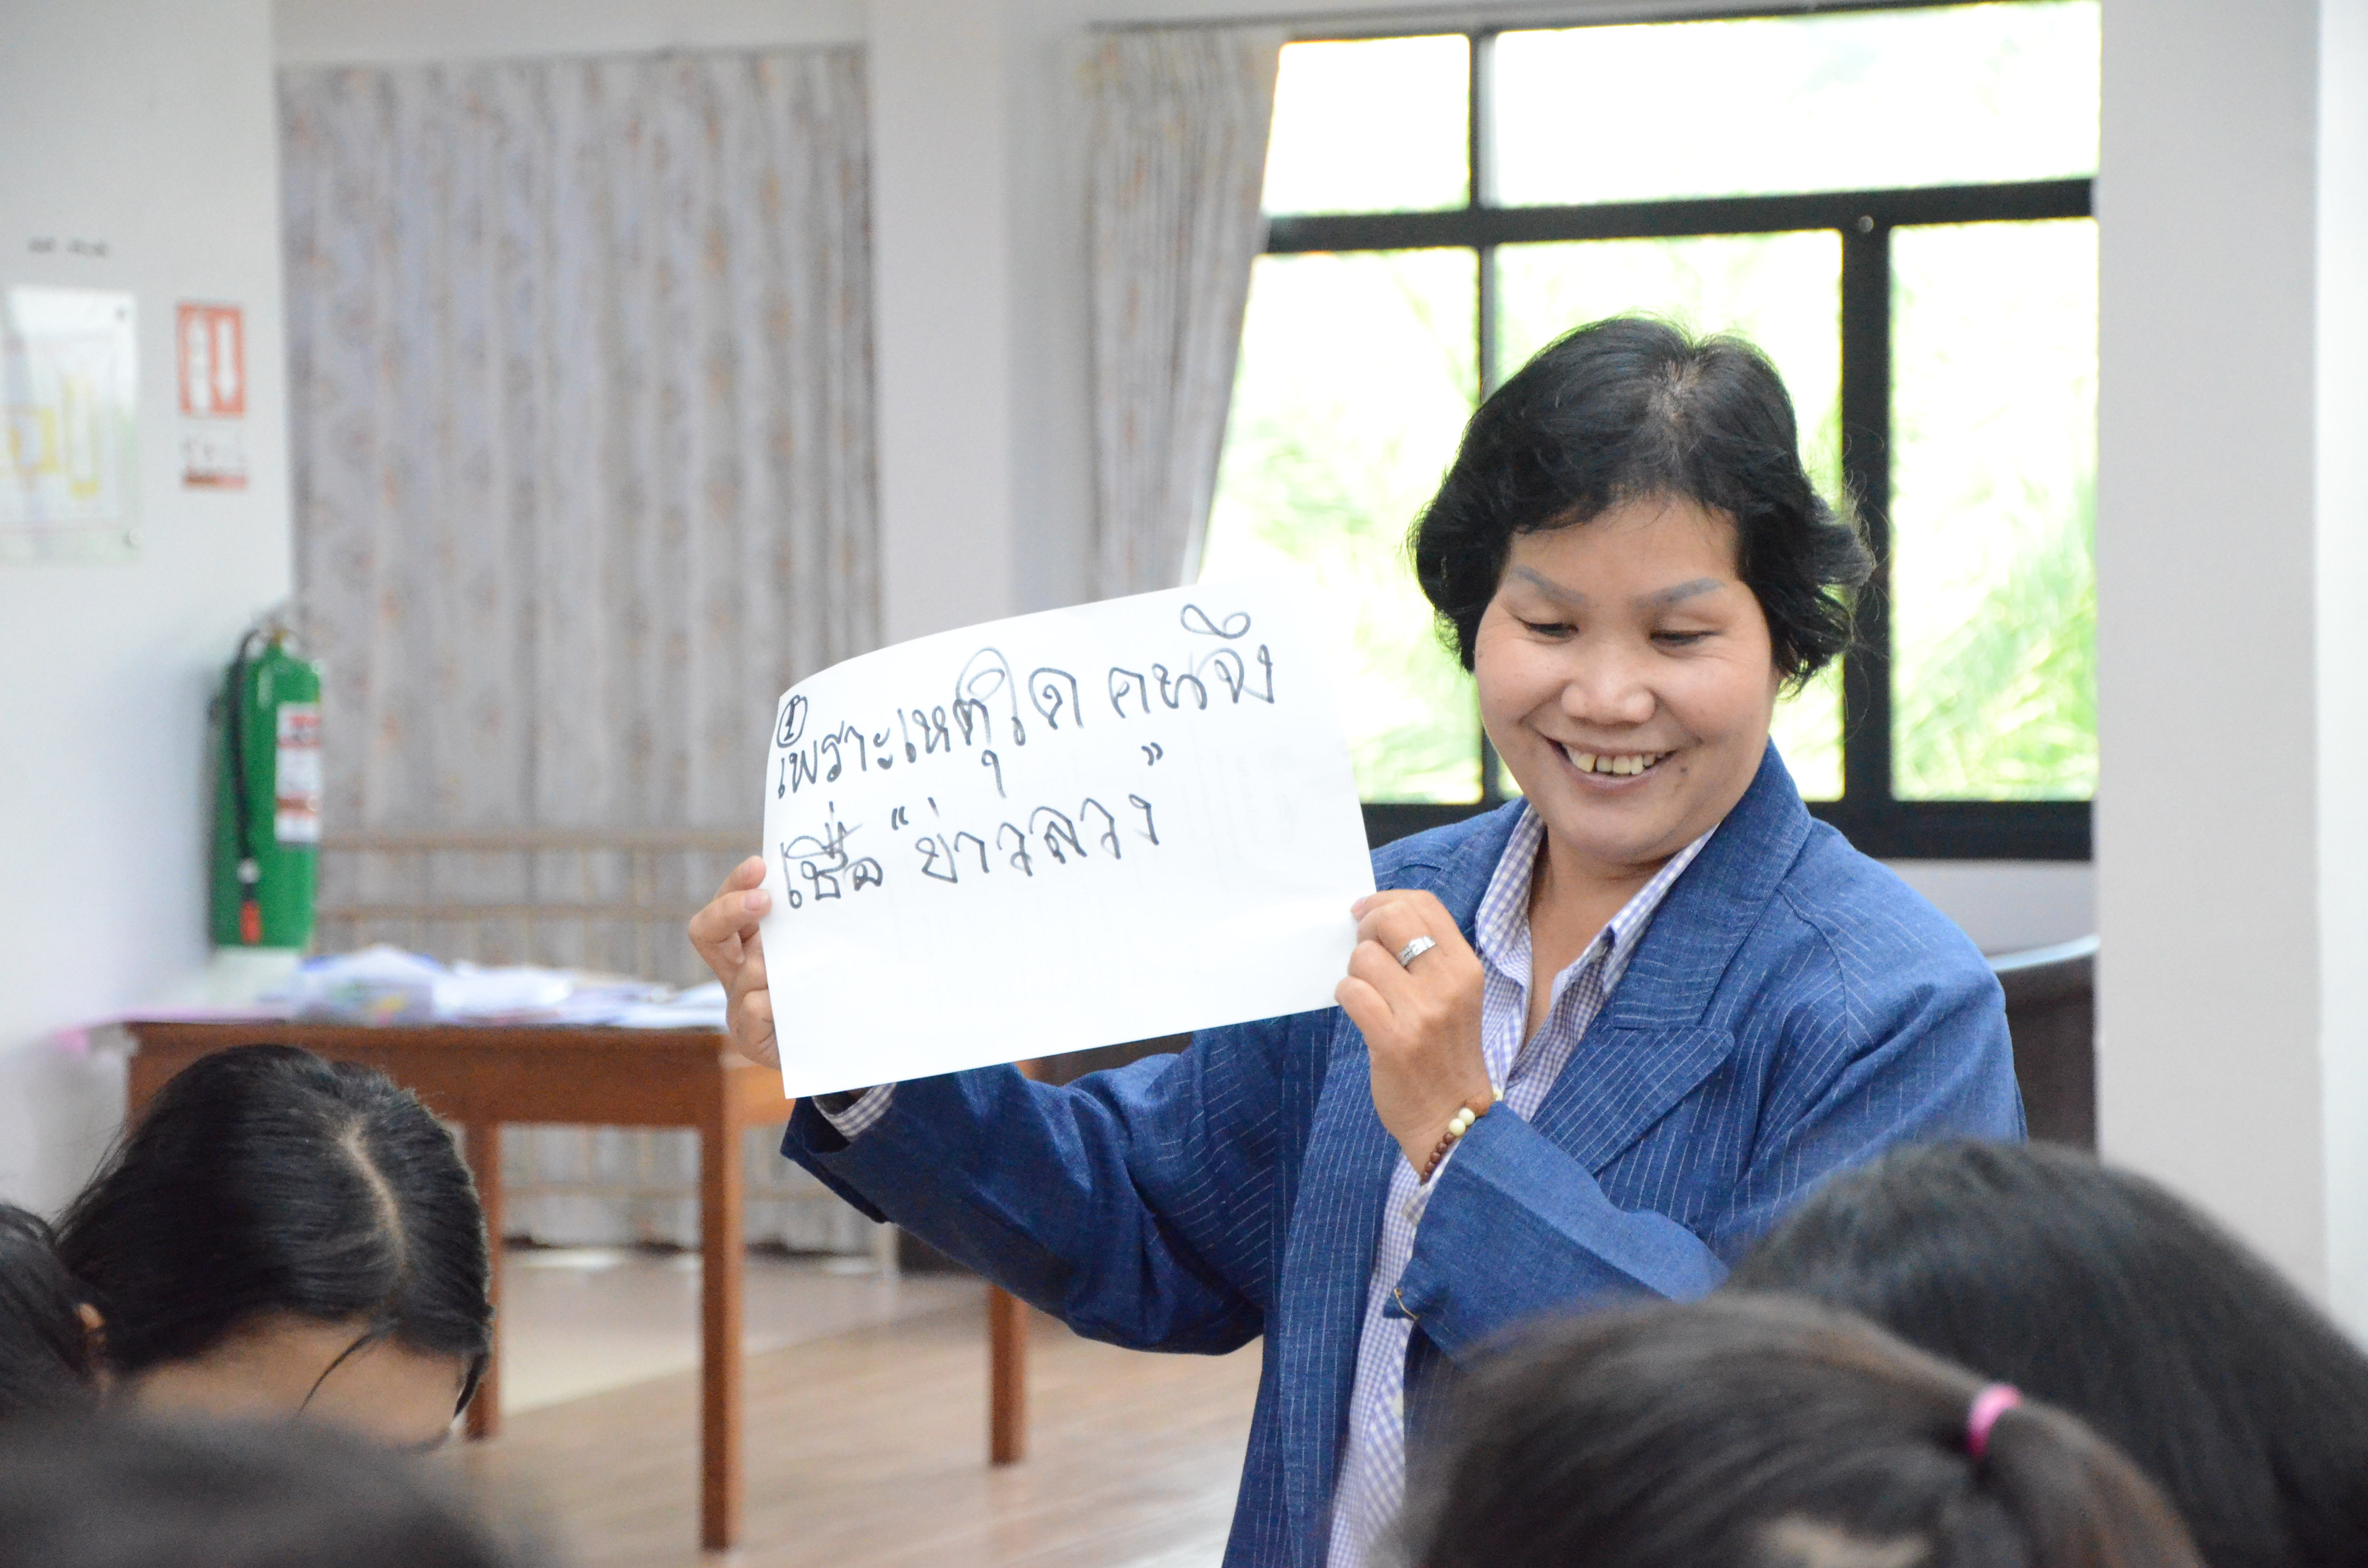 ① เพราะเหตุใด คนจึง
เชื่อ "ข่าวลวง"